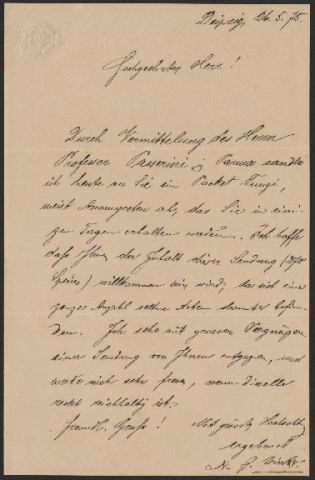 Leipzig, 26.5.75.
Hochgeehrter Herr!
Durch Vermittelung des Herrn
Professor Passerini z. Parma sandte
ich heute an Sie ein Packet Fungi,
meist ab, das Sie in eini-
ge Tagen erhalten werden. Ich hoffe
daß Ihnen der Inhalt dieser Sendung
willkommen sein wird, da sich eine
ganze Anzahl seltne Arten darunter befin-
den. Ich sehe mit grossem Vergnügen
einer Sendung von Ihnen entgegen, und
werde mich sehr freuen, wenn dieselbe
recht reichhaltig ist.
freundl. Gruss! Mit
ergebenst
Dr. G. Winter